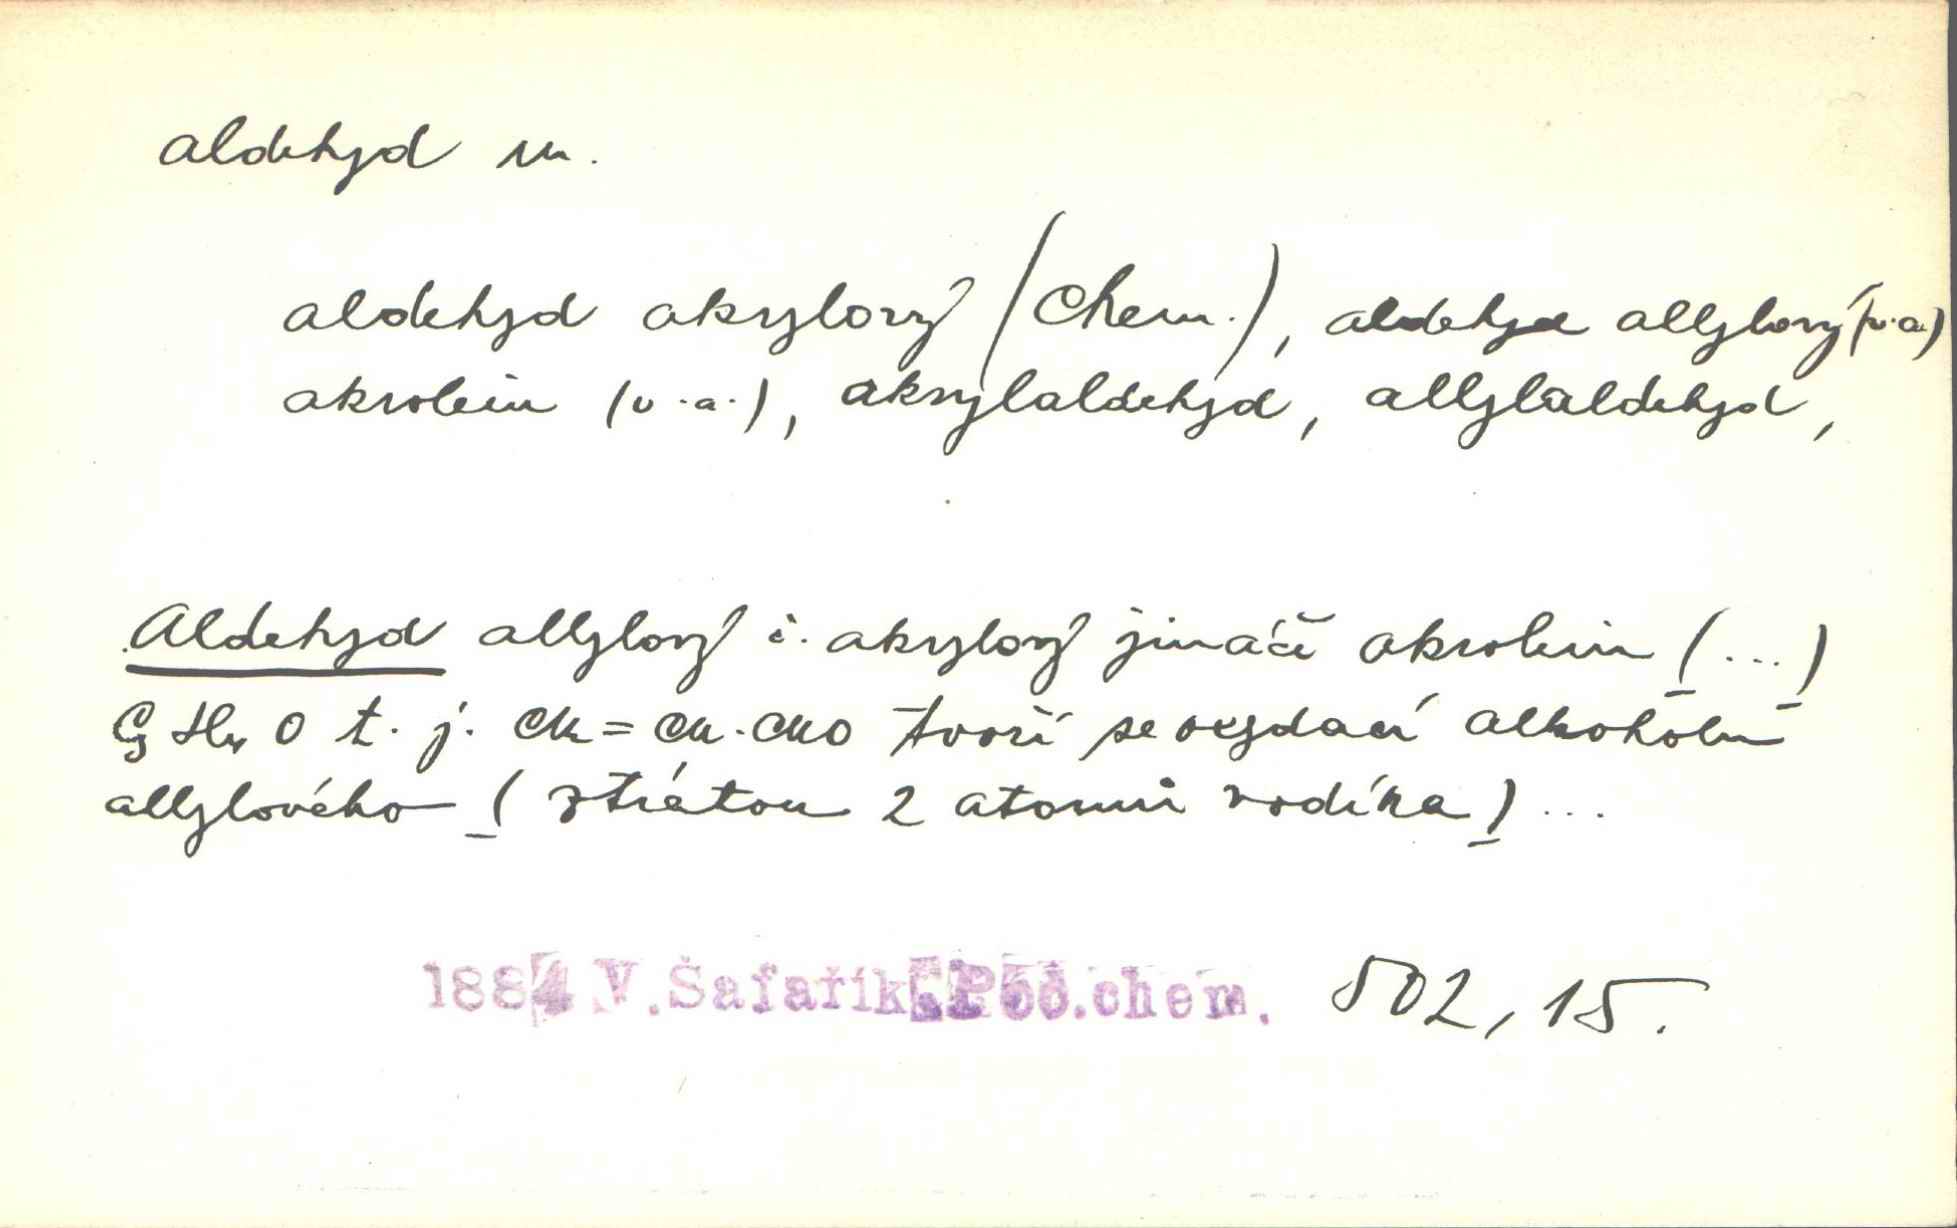 aldehyd m.
aldehyd akrylový (Chem.), aldehyd allylový (v.a.)
akrolein (v.a.), akrylaldehyd, allylaldehyd,
Aldehyd allylový i. akrylový jináče akrolein (...)
C3H4O t. j. CH2=CH.CHO tvoří se oxydací alkoholu
allylového (ztrátou 2 atomů vodíka) ...
1884 V.Šafařík, Poč.chem. 502, 15.